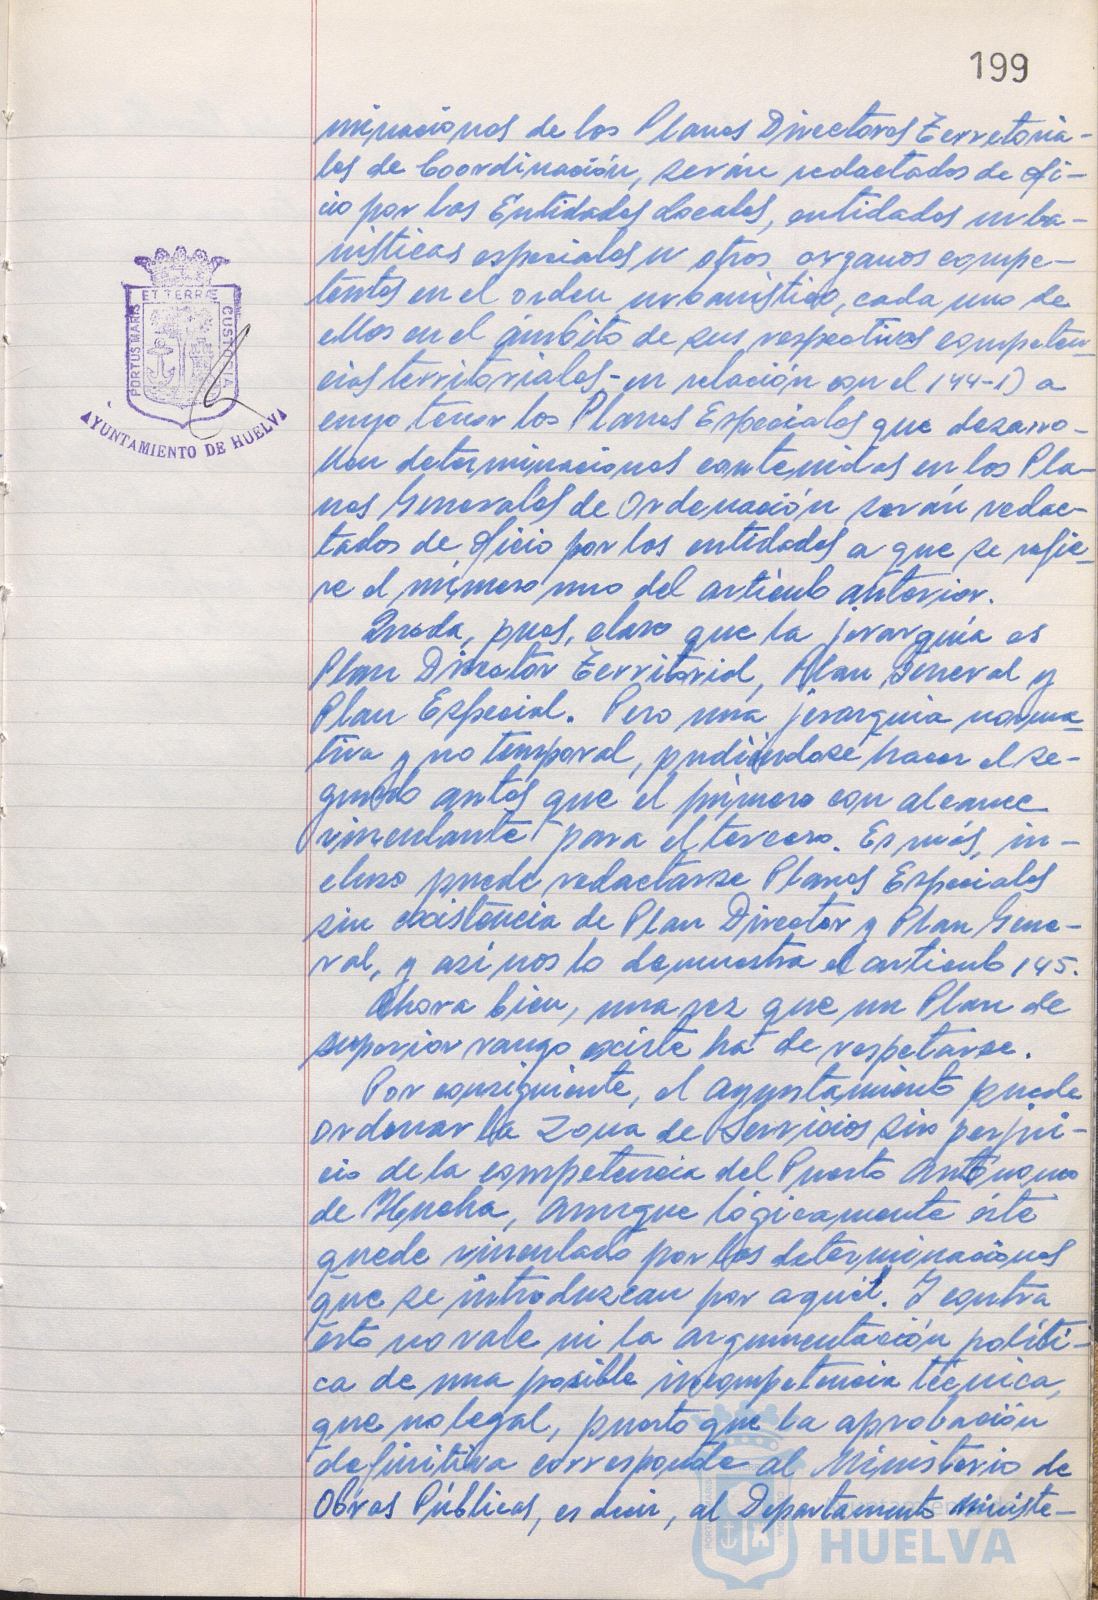 199
minaciones de los Planes Directores Territoria-
les de Coordinación, serán redactados de ofi-
cio por las Entidades Locales, entidades urba-
nísticas especiales u otros organos compe-
tentes en el orden urbanístico, cada uno de
ellos en el ámbito de sus respectivas competen-
cias territoriales- en relación con el 144-1) a
cuyo tenor los Planes Especiales que desarro-
llen determinaciones contenidas en los Pla-
nes Generales de Ordenación serán redac-
tados de oficio por las entidades a que se refie-
re el número uno del artículo anterior.
Queda, pues, claro que la jerarquía es
Plan Director Territorial, Plan General y
Plan Especial. Pero una jerarquía norma-
tiva y no temporal, pudiéndose hacer el se-
gundo antes que el primero con alcance
vinculante para el tercero. Es más, in-
cluso puede redactarse Planes Especiales
sin existencia de Plan Director y Plan Gene-
ral, y así nos lo demuestra el artículo 145.
Ahora bien, una vez que un Plan de
superior rango existe ha de respetarse.
Por consiguiente, el Ayuntamiento puede
ordenar la Zona de Servicios sin perjui-
cio de la competencia del Puerto Autónomo
de Huelva, aunque lógicamente éste
quede vinculado por las determinaciones
que se introduzcan por aquél. Y contra
esto no vale ni la argumentación políti-
ca de una posible incompetencia técnica,
que no legal, puesto que la aprobación
definitiva corresponde al Ministerio de
Obras Públicas, es decir, al Departamento Ministe-
PORTUS MARIS ET TERRÆ CUSTODIA
AYUNTAMIENTO DE HUELVA
HUELVA